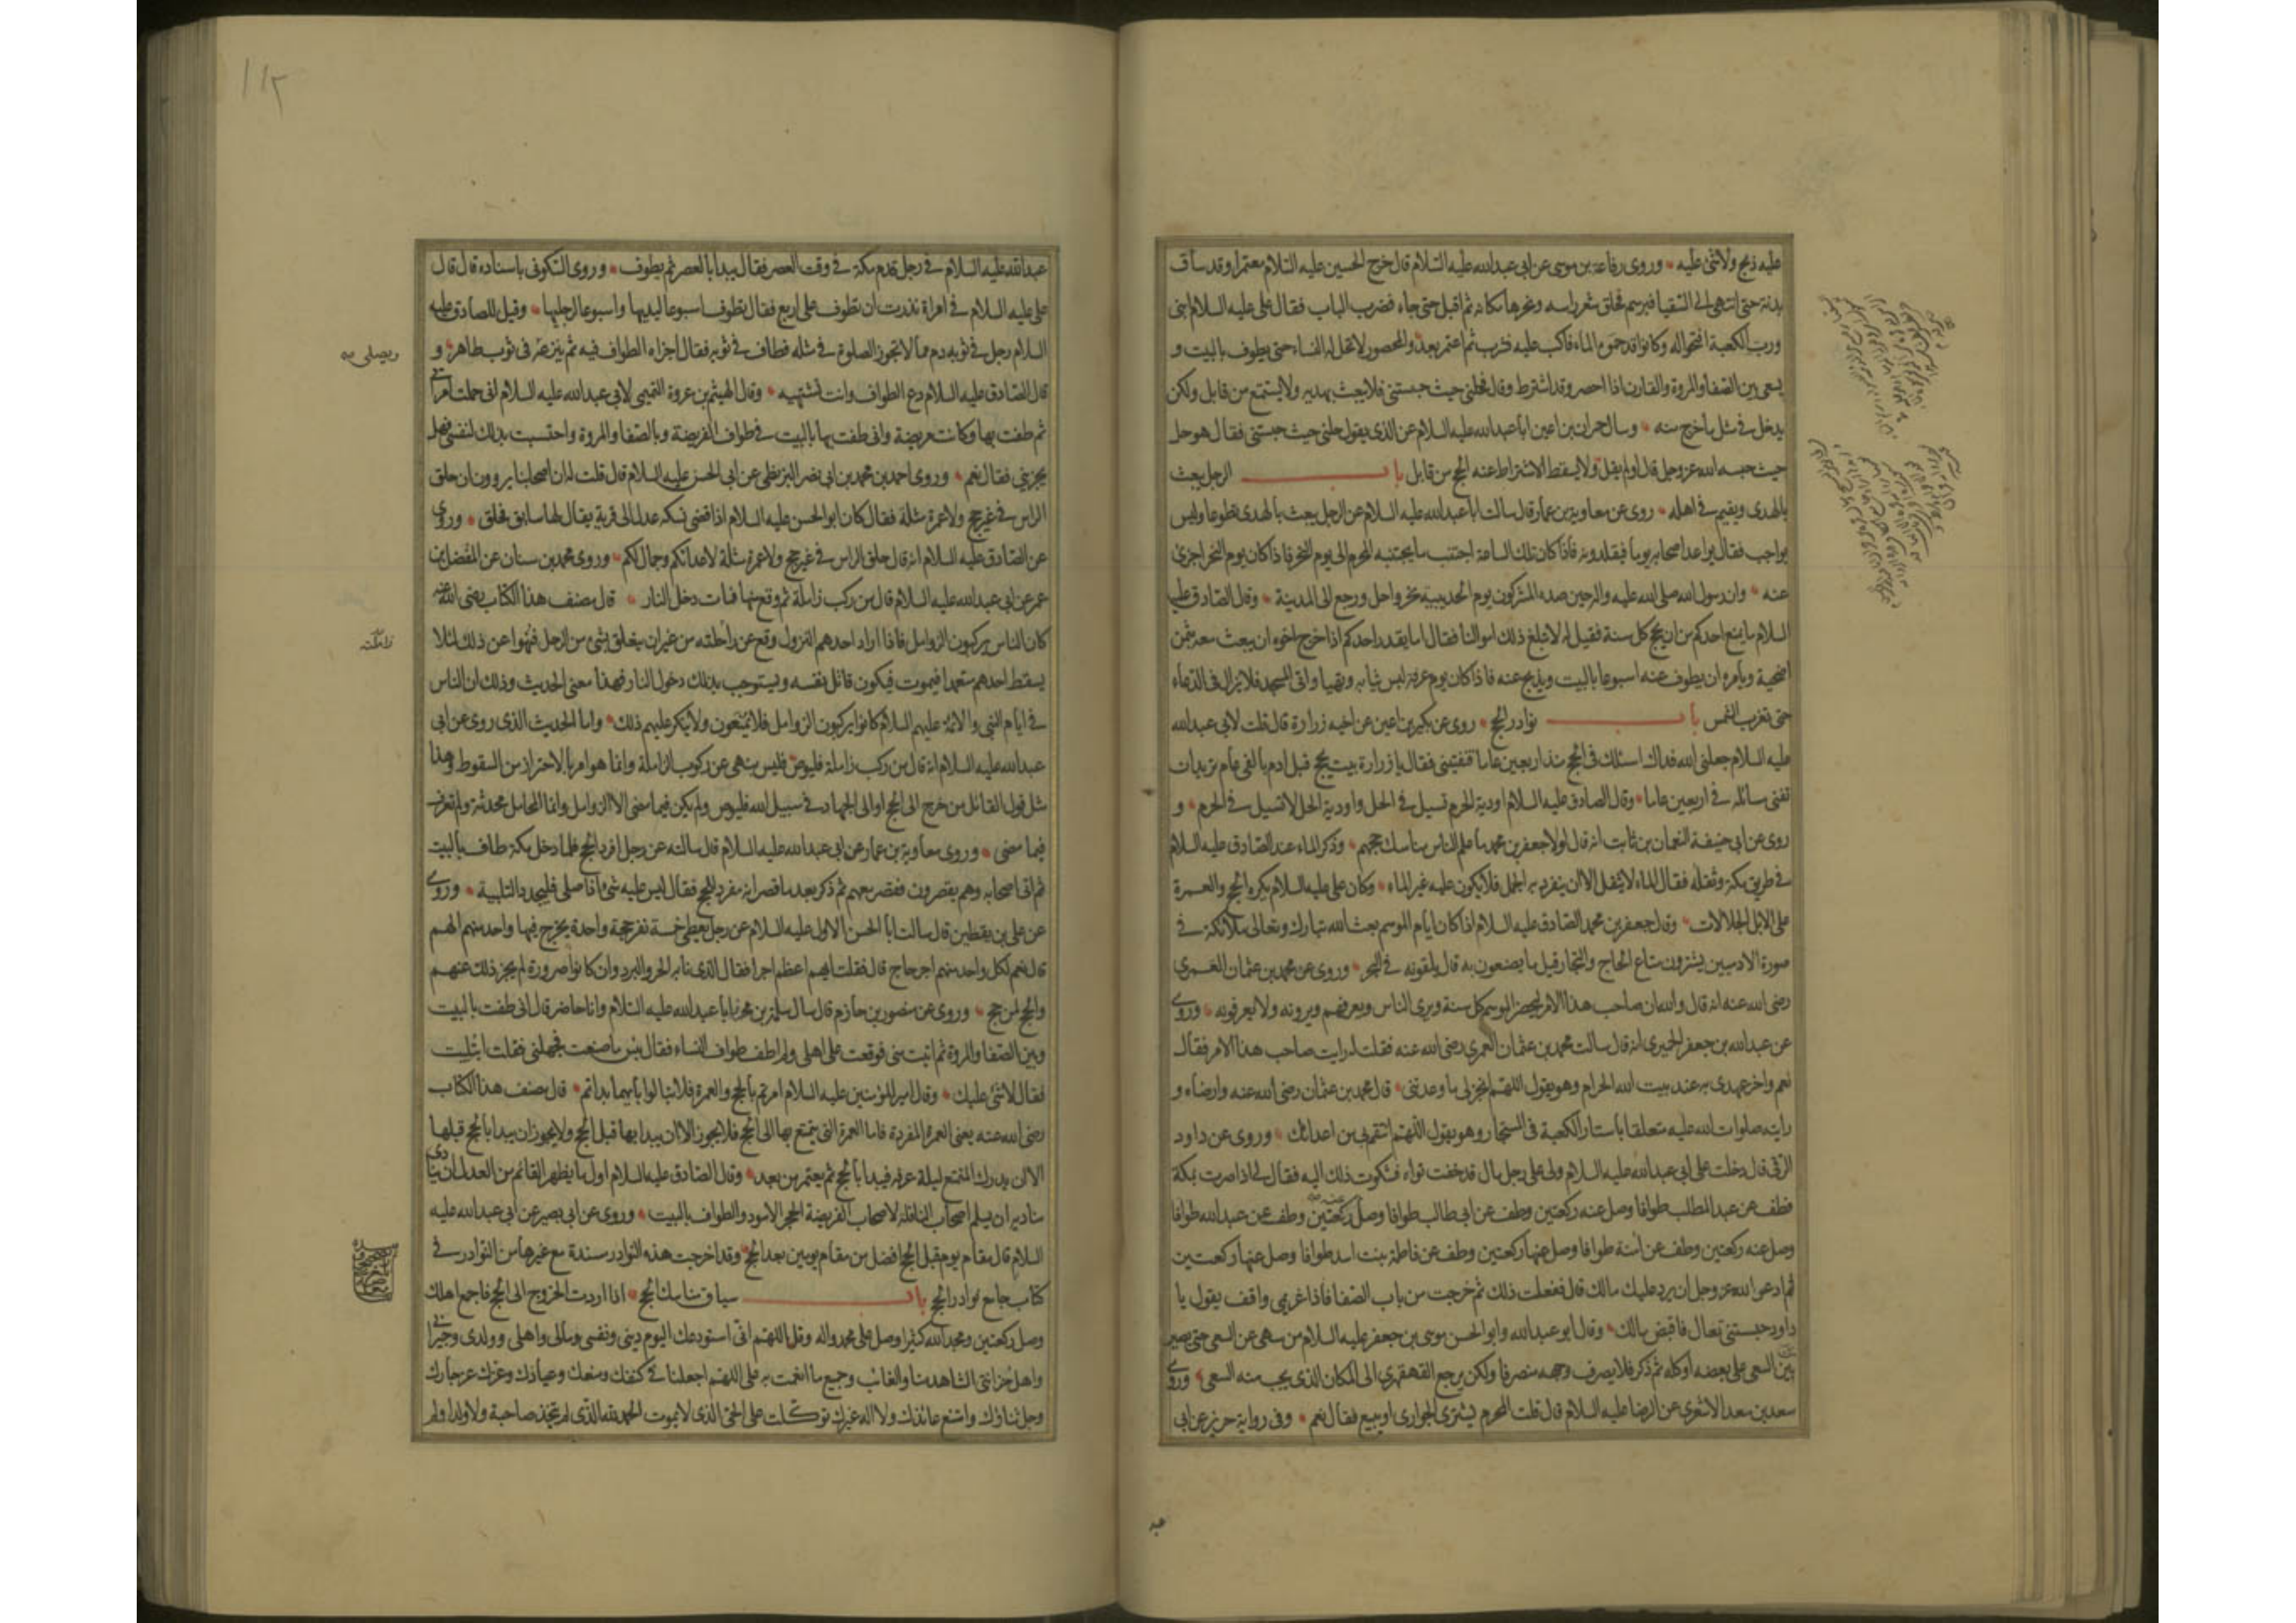 عليه ذبح ولا شئ عليه وروى رفاعة بن موسى عن ابى عبدالله عليه السلام قال خرج الحسين عليه السلام معتمرا وقد ساق
بدنة حتى انتهى الى السقيا فبرسم فحلق شعر راسه ونحرها مكانه ثم اقبل حتى جاء فضرب الباب فقال على عليه السلام ابنى
ورب الكعبة افتحوا له وكانوا قد حموا الماء فاكب عليه فشرب ثم اعتمر بعد والمحصور لا تحل له النساء حتى يطوف بالبيت و
يسعى بين الصفا والمروة والقارن اذا احصر وقد اشترط وقال فحلنى حيث حبستنى فلا يبعث بهديه ولا يستمتع من قابل ولكن
يدخل فى مثل ما خرج منه وسال حمران بن اعين ابا عبدالله عليه السلام عن الذى يقول حلنى حيث حبستنى فقال هو حل
حيث حبسه الله عز وجل قال او لم يقل ولا يسقط الاشتراط عنه الحج من قابل باب الرجل يبعث
بالهدى ويقيم فى اهله روى عن معاوية بن عمار قال سالت ابا عبدالله عليه السلام عن الرجل يبعث بالهدى تطوعا وليس
بواجب فقال يواعد اصحابه يوما فيقلدونه فاذا كان تلك الساعة اجتنب ما يجتنبه المحرم الى يوم النحر فاذا كان يوم النحر اجزئ
عنه وان رسول الله صلى الله عليه واله حين صده المشركون يوم الحديبية نحر واحل ورجع الى المدينة وقال الصادق عليه
السلام ما يمنع احدكم من ان يحج كل سنة فقيل له لا تبلغ ذلك اموالنا فقال اما يقدر احدكم اذا خرج اخوه ان يبعث معه بثمن
اضحية ويامره ان يطوف عنه اسبوعا بالبيت ويذبح عنه فاذا كان يوم عرفة لبس ثيابه وتهيا واتى المسجد فلا يزال فى الدعاء
حتى تغرب الشمس باب نوادر الحج روى عن بكير بن اعين عن اخيه زرارة قال قلت لابى عبدالله
عليه السلام جعلنى الله فداك اسئلك فى الحج منذ اربعين عاما فتفتينى فقال يا زرارة بيت يحج قبل ادم بالفى عام تريد ان
تفنى مسائله فى اربعين عاما وقال الصادق عليه السلام اودية الحرم تسيل فى الحل واودية الحل لا تسيل فى الحرم و
روى عن ابى حنيفة النعمان بن ثابت انه قال لولا جعفر بن محمد ما علم الناس مناسك حجهم وذكر الماء عند الصادق عليه السلام
فى طريق مكة وثقله فقال الماء لا يثقل الا ان ينفرد به الجمل فلا يكون عليه غير الماء وكان على عليه السلام يكره الحج والعمرة
على الابل الجلالات وقال جعفر بن محمد الصادق عليه السلام اذا كان ايام الموسم بعث الله تبارك وتعالى ملائكة فى
صورة الادميين يشترون متاع الحاج والتجار قيل ما يصنعون به قال يلقونه فى البحر وروى عن محمد بن عثمان العمرى
رضى الله عنه انه قال والله ان صاحب هذا الامر ليحضر الموسم كل سنة ويرى الناس ويعرفهم ويرونه ولا يعرفونه وروى
عن عبدالله بن جعفر الحميرى انه قال سالت محمد بن عثمان العمرى رضى الله عنه فقلت له رايت صاحب هذا الامر فقال
نعم واخر عهدى به عند بيت الله الحرام وهو يقول اللهم انجز لى ما وعدتنى قال محمد بن عثمان رضى الله عنه وارضاه و
رايته صلوات الله عليه متعلقا باستار الكعبة فى المستجار وهو يقول اللهم انتقم بى من اعدائك وروى عن داود
الرقى قال دخلت على ابى عبدالله عليه السلام ولى على رجل مال قد خفت تواه فشكوت ذلك اليه فقال لى اذا صرت بمكة
فطف عن عبد المطلب طوافا وصل عنه ركعتين وطف عن ابى طالب طوافا وصل عنه ركعتين وطف عن عبدالله طوافا
وصل عنه ركعتين وطف عن آمنة طوافا وصل عنها ركعتين وطف عن فاطمة بنت اسد طوافا وصل عنها ركعتين
ثم ادعو الله عز وجل ان يرد عليك مالك قال ففعلت ذلك ثم خرجت من باب الصفا فاذا غريمى واقف يقول يا
داود حبستنى تعال فاقبض مالك وقال ابو عبدالله وابو الحسن موسى بن جعفر عليه السلام من سهى عن السعى حتى يصير
من السعى على بعضه او كله ثم ذكر فلا يصرف وجهه منصرفا ولكن يرجع القهقرى الى المكان الذى يجب منه السعى وروى
سعد بن سعد الاشعرى عن الرضا عليه السلام قال قلت المحرم يشترى الجوارى او يبيع فقال نعم وفى رواية حريز عن ابى
عبد
١١٢
عبدالله عليه السلام فى رجل قدم مكة فى وقت العصر فقال يبدا بالعصر ثم يطوف وروى السكونى باسناده قال قال
على عليه السلام فى امراة نذرت ان تطوف على اربع فقال تطوف اسبوعا ليديها واسبوعا لرجليها وقيل للصادق عليه
السلام رجل فى ثوبه دم مما لا تجوز الصلوة فى مثله فطاف فى ثوبه فقال اجزاه الطواف فيه ثم ينزعه فى ثوب طاهر و
ويصلى
قال الصادق عليه السلام دع الطواف وانت تشتهيه وقال الهيثم بن عروة التميمى لابى عبدالله عليه السلام انى حملت امراتى
ثم طفت بها وكانت مريضة وانى طفت بها بالبيت فى طواف الفريضة وبالصفا والمروة واحتسبت بذلك لنفسى فهل
يجزينى فقال نعم وروى احمد بن محمد بن ابى نصر البزنطى عن ابى الحسن عليه السلام قال قلت له ان اصحابنا يروون ان حلق
الراس فى غير حج ولا عمرة مثلة فقال كان ابو الحسن عليه السلام اذا قضى نسكه عدل الى قرية يقال لها سابق فحلق وروى
عن الصادق عليه السلام انه قال حلق الراس فى غير حج ولا عمرة مثلة لاعدائكم وجمال لكم وروى محمد بن سنان عن المفضل بن
عمر عن ابى عبدالله عليه السلام قال من ركب زاملة ثم وقع منها فمات دخل النار قال مصنف هذا الكتاب رضى الله عنه
كان الناس يركبون الزوامل فاذا اراد احدهم النزول وقع عن راحلته من غير ان يتعلق بشئ من الرحل فنهوا عن ذلك لئلا
زاملته
يسقط احدهم متعمدا فيموت فيكون قاتل نفسه ويستوجب بذلك دخول النار فهذا معنى الحديث وذلك ان الناس
فى ايام النبى والائمة عليهم السلام كانوا يركبون الزوامل فلا يمنعون ولا ينكر عليهم ذلك واما الحديث الذى روى عن ابى
عبدالله عليه السلام انه قال من ركب زاملة فليوص فليس بنهى عن ركوب الزاملة وانما هو امر بالاحتراز من السقوط وهذا
مثل قول القائل من خرج الى الحج او الى الجهاد فى سبيل الله فليوص ولم يكن فيما مضى الا الزوامل وانما المحامل محدثة ولم تعرف
فيما مضى وروى معاوية بن عمار عن ابى عبدالله عليه السلام قال سالته عن رجل افرد الحج فلما دخل مكة طاف بالبيت
ثم اتى اصحابه وهم يقصرون فقصر معهم ثم ذكر بعد ما قصر انه مفرد للحج فقال ليس عليه شئ اذا صلى فليجدد التلبية وروى
عن على بن يقطين قال سالت ابا الحسن الاول عليه السلام عن رجل يعطى خمسة نفر حجة واحدة يخرج فيها واحد منهم الهم
قال نعم لكل واحد منهم اجر حاج قال فقلت ايهم اعظم اجرا فقال الذى نابه الحر والبرد وان كانوا صرورة لم يجز ذلك عنهم
والحج لمن حج وروى عن منصور بن حازم قال سال سلمة بن محرز ابا عبدالله عليه السلام وانا حاضر قال انى طفت بالبيت
وبين الصفا والمروة ثم اتيت منى فوقعت على اهلى ولم اطف طواف النساء فقال بئس ما صنعت فجهلنى فقلت ابتليت
فقال لا شئ عليك وقال امير المؤمنين عليه السلام امرتم بالحج والعمرة فلا تبالوا بايهما بداتم قال مصنف هذا الكتاب
رضى الله عنه يعنى العمرة المفردة فاما العمرة التى يتمتع بها الى الحج فلا يجوز الا ان يبدا بها قبل الحج ولا يجوز ان يبدا بالحج قبلها
الا ان يدرك المتمتع ليلة عرفة فيبدا بالحج ثم يعتمر من بعد وقال الصادق عليه السلام اول ما يظهر القائم من العدل ان ينادى
مناديه ان يسلم اصحاب النافلة لاصحاب الفريضة الحجر الاسود والطواف بالبيت وروى عن ابى بصير عن ابى عبدالله عليه
السلام قال مقام يوم قبل الحج افضل من مقام يومين بعد الحج وقد اخرجت هذه النوادر مسندة مع غيرها من النوادر فى
كتاب جامع نوادر الحج باب سياق مناسك الحج اذا اردت الخروج الى الحج فاجمع اهلك
وصل ركعتين ومجد الله كثيرا وصل على محمد واله وقل اللهم انى استودعك اليوم دينى ونفسى ومالى واهلى وولدى وجيرانى
واهل حزانتى الشاهد منا والغائب وجميع ما انعمت به على اللهم اجعلنا فى كنفك ومنعك وعياذك وعزك عز جارك
وجل ثناؤك وامتنع عائذك ولا اله غيرك توكلت على الحى الذى لا يموت الحمد لله الذى لم يتخذ صاحبة ولا ولدا ولم